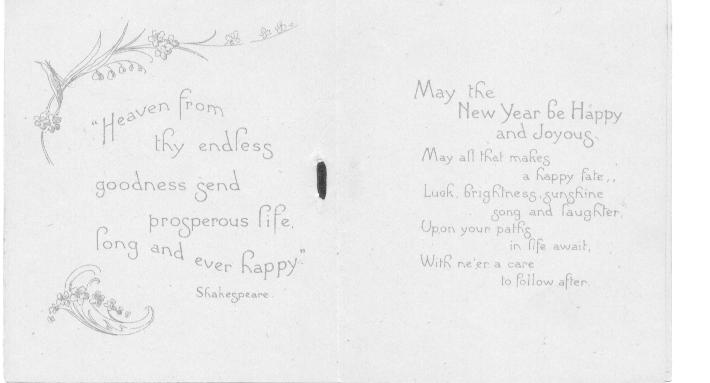 "Heaven from
thy endless
goodness send
prosperous life,
long and ever happy."
Shakespeare.
May the
New Year be Happy
and Joyous.
May all that makes
a happy fate,,
Luck, brightness, sunshine
song and laughter,
Upon your paths
in life await,
With ne'er a care
to follow after.